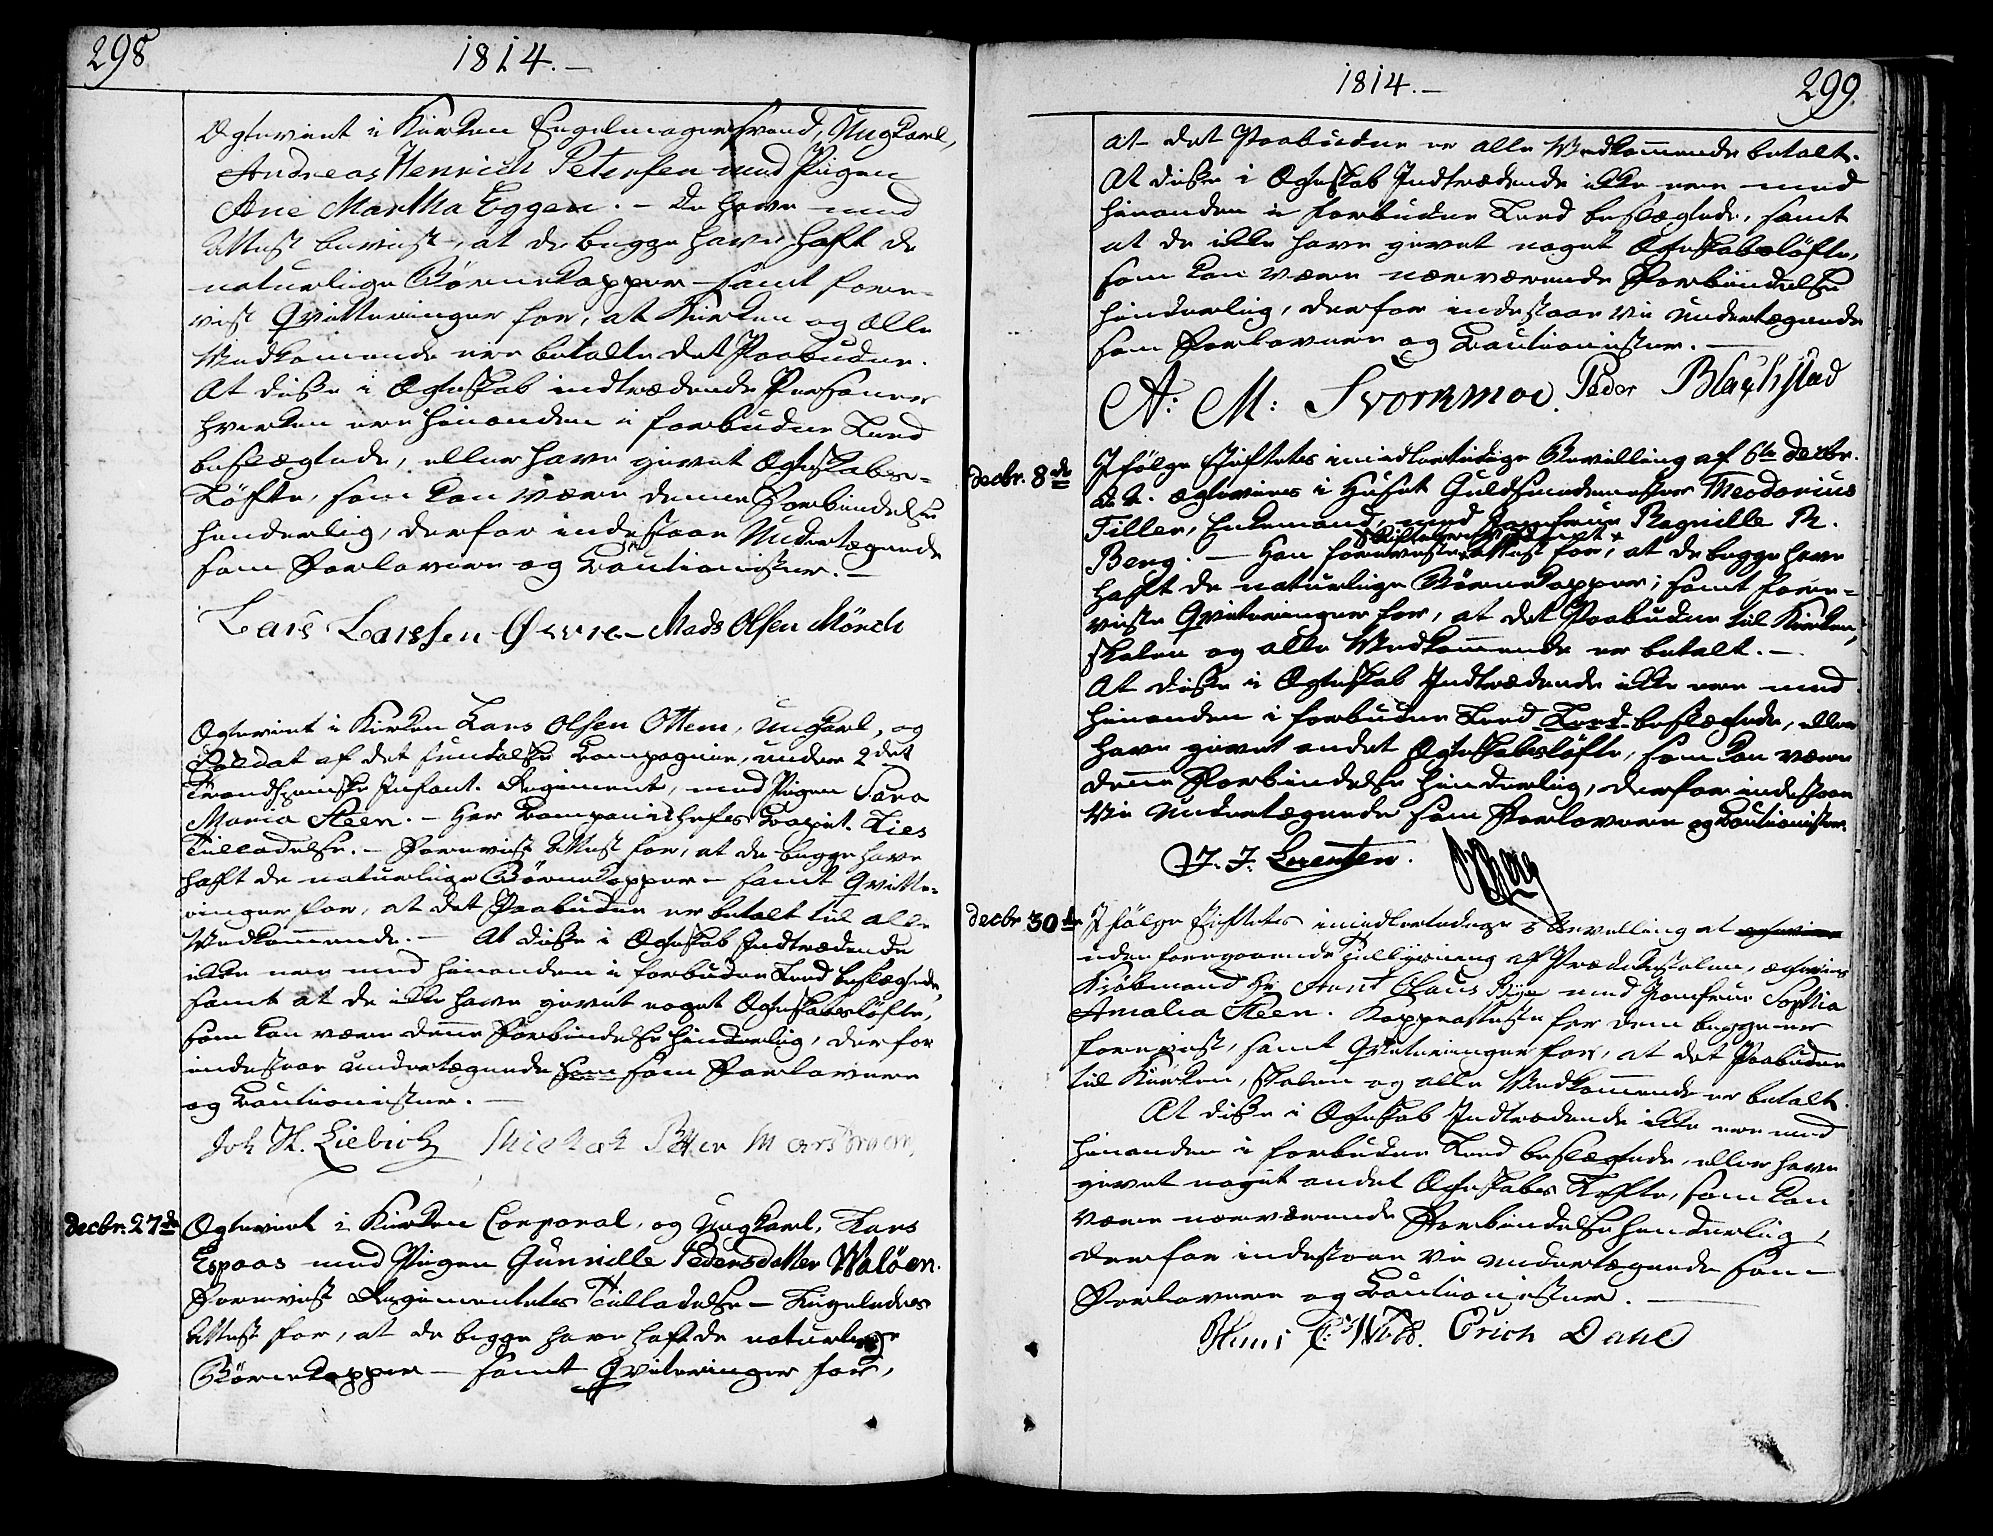 298
1814.-
Ægteviet i Kirken Engelmagersvend, Ungkarl,
Andreas Henrich Petersen med Pigen
Ane Martha Eggen. - De have med
Attest beviist, at de begge have haft de
naturlige Børnekopper - samt fore-
vist Qvitteringer for, at Kirken og alle
Vedkomende ere betalte det Paabudne.
At disse i Ægteskab indtrædende Personer
hverken ere hinanden i forbudne Leed
beslægtede, eller have givet Ægteskabs-
Løfte, som kan være denne Forbindelse
hinderlig, derfor indestaar Undertegnede
som Forlovere og Cautionister. -
Lars Larssen Øvre - Mads Olsen Mörch
Ægteviet i Kirken Lars Olsen Ottem, Ungkarl, og
Soldat af det sundalske Compagnie, under 2det
Trondhjemske Infant. Regiment, med Pigen Sara
Maria Steen. - Har Compagniechefes Capit. Lies
Tilladelse. - Forevist Attest for, at de begge have
haft de naturlige Børnekopper - samt Qvitte-
ringer for, at det Paabudne er betalt til alle
Vedkommende. - At disse i Ægteskab Indtrædende
ikke ere med hinanden i forbudne Leed beslægtede,
samt at de ikke have givet noget Ægteskabsløfte,
som kan være denne Forbindelse hinderlig, derfor
indestaar undertegnede som som Forlovere
og Cautionister. -
Joh H. Liebich Michah Petter
decbr. 27de Ægteviet i Kirken Corporal, og Ungkarl, Lars
Espaas med Pigen Gunnille Pedersdatter Waløen.
Forevist Regimentets Tilladelse - Ligeledes
Attest for, at de begge have haft de naturlige
Børnekopper - samt Qviteringer for,
1814.-
299.
at det Paabudne er alle Vedkommende betalt.
At disse i Ægteskab Indtrædende ikke ere med
hinanden i forbudne Leed beslægtede, samt
at de ikke have givet noget Ægteskabsløfte,
som kan være nærværende Forbindelse
hinderlig, derfor indestaar vi undertegnede
som Forlovere og Cautionister. -
A. M: Svorkmoe. Peder Blachstad
decbr. 8de Ifølge Stiftets imidlertidige Bevilling af 6te decbr.
d. A. ægtevies i Huset Guldsmedmester Theodorius
Tiller, Enkemand, med Jomfrue Ragnille R.
Berg. - Han foreviste Attest for, at de begge have
haft de naturlige Børnekopper; samt fore-
viste Qviteringer for, at det Paabudne til Kirken,
Skolen og alle Vedkommende er betalt. -
At disse i Ægteskab Indtrædende ikke ere med
hinanden i forbudne Leed Leed beslægtede, eller
have givet andet Ægteskabsløfte, som kan være
denne Forbindelse hinderlig, derfor indestaar
Vi Undertegnede som Forlovere og Cautionister.
J. J. Luentzen.
decbr 30de Ifølge Stiftets imidlertidige Bevilling at
uden foregaaende Tillysning af Prædikestolen, ægtevies
Kiøbmand Hr Arnt Claus Bye med Jomfrue Sophia
Amalia Steen. Koppeattester for dem begge ere
forevist, samt Qviteringer for, at det Paabudne
til Kirken, Skolen og alle Vedkommende er betalt.
At disse i Ægteskab Indtrædende ikke ere med
hinanden i forbudne Leed beslægtede, eller have
givet noget andet Ægteskabs Løfte, som kan
være nærværende Forbindelse hinderlig,
derfor indestaar vi undertegnede som
Forlovere og Cautionister. -
Erich Dahl